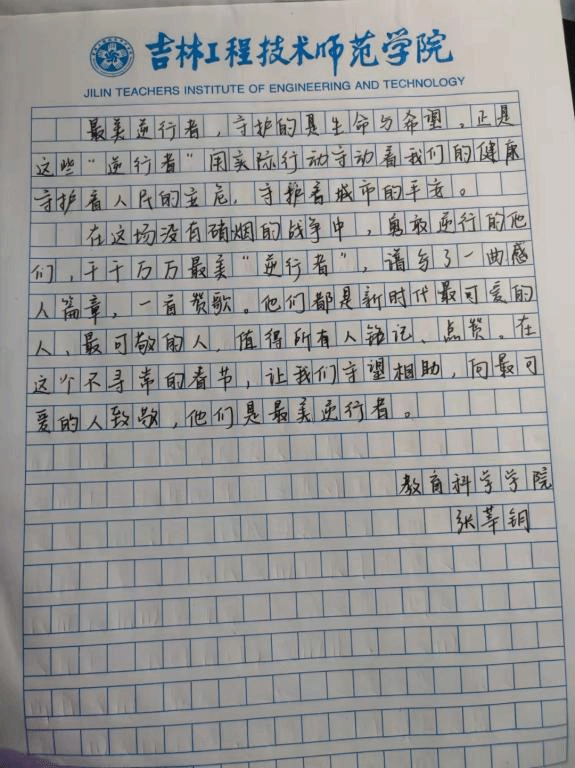 吉林工程技术师范学院
JILIN TEACHERS INSTITUTE OF ENGINEERING AND TECHNOLOGY
最美逆行者，守护的是生命与希望。正是
这些“逆行者”用实际行动守动着我们的健康
守护着人民的安危，守护着城市的平安。
在这场没有硝烟的战争中，勇敢逆行的他
们，千千万万最美“逆行者”，谱写了一曲感
人篇章，一首赞歌。他们都是新时代最可爱的
人、最可敬的人，值得所有人铭记、点赞。在
这个不寻常的春节，让我们守望相助，向最可
爱的人致敬，他们是最美逆行者。
教育科学学院
张莘钥